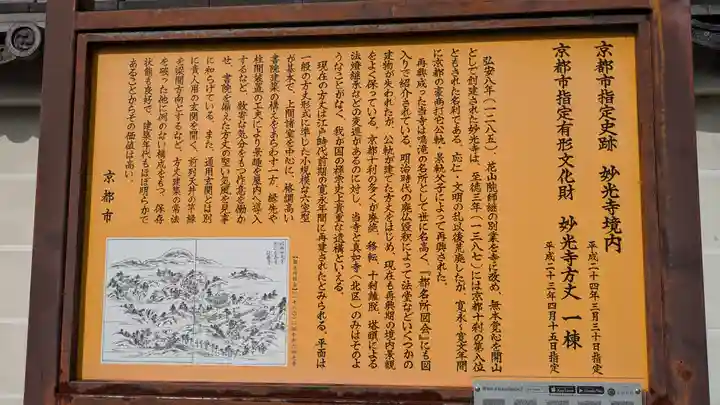 京都市指定史跡　妙光寺境内
平成二十四年三月三十日指定
京都市指定有形文化財　妙光寺方丈　一棟
平成二十三年四月十五日指定
弘安八年（一二八五）、花山院師継の別業を寺に改め、無本覚心を開山
として創建された妙光寺は、至徳三年（一三八六）には京都十刹の第八位
ともされた名刹である。応仁・文明の乱以後見廃したが、寛永～寛文年間
に京都の豪商打它公軌、景軌父子によって再興された。
再興成った当寺は鳴滝の名所として世に名高く、『都名所図会』にも図
入りで紹介されている。明治時代の廃仏毀釈によって法堂などいくつかの
建物が失われたが、公軌が建てた方丈をはじめ、現在も再興期の境内景観
をよく保っている。京都十刹の多くが廃絶、移転、十刹離脱、塔頭による
法燈継承などの変遷があるのに対し、当寺と真如寺（北区）のみはそのよ
うなことがなく、我が国の禅宗史上貴重な遺構といえる。
現在の方丈は江戸時代前期の寛永年間に再建されたとみられる。平面は
一般の方丈形式に準じた小規模な六室型
が基本で、上間諸室を中心に、格調高い
書院建築の構えをあらわす一方、縁先や
柱間装置の工夫により景趣を屋内へ導入
するなど、数寄な気分をもつ内意を働か
せ、書院を備えた方丈の堅い気風を見事
に和らげている。また、通用玄関とは別
に貴人用の玄関を開く、前列天井の竿縁
を梁間方向とするなど、方丈建築の常法
を破った他に例のない構成をもつ。保存
状態も良好で、建築年代もほぼ明らかで
あることからその価値は高い。
京都市